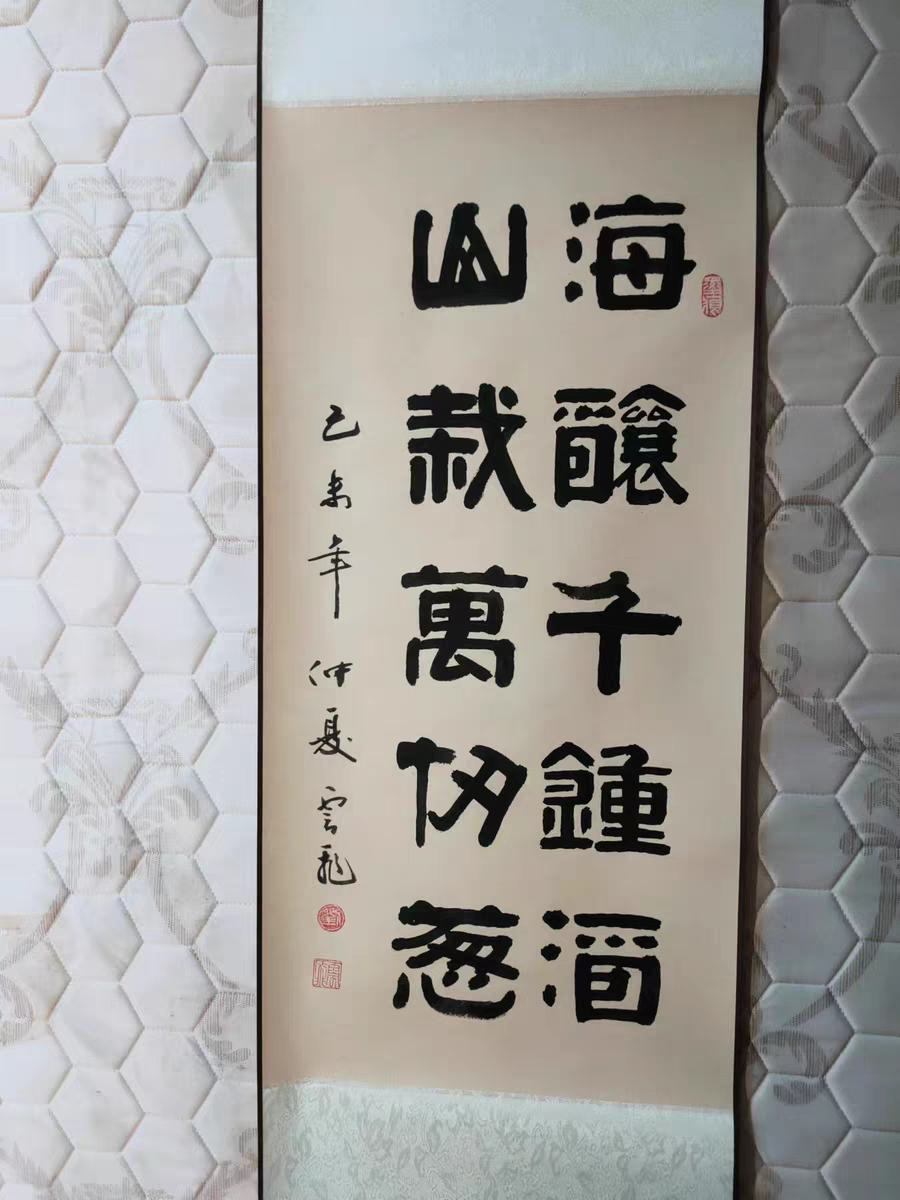 海釀千鍾酒
山栽萬仞葱
己未年仲夏雲龍